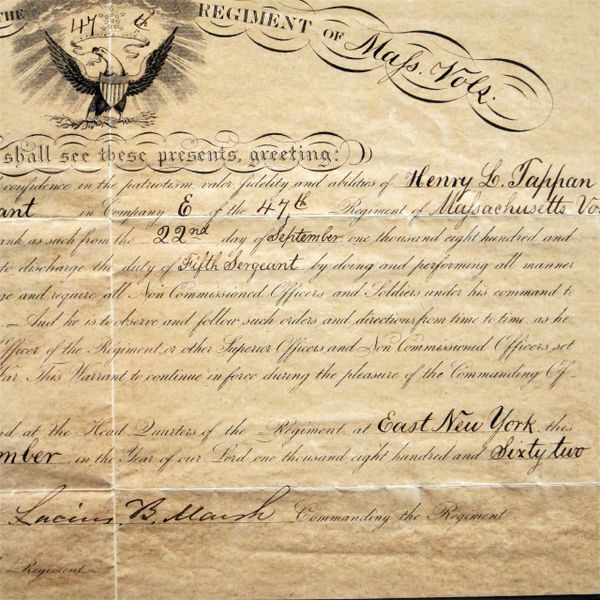 THE 47th REGIMENT OF Mass. Vols.
shall see these presents, greeting:
confidence in the patriotism, valor, fidelity and abilities of Henry L. Tappan
ant in Company E of the 47th Regiment of Massachusetts Vo
ank as such from the 22nd day of September one thousand eight hundred and
to discharge the duty of Fifth Sergeant by doing and performing all manner
ge and require all Non Commissioned Officers and Soldiers under his command to
And he is to observe and follow such orders and directions from time to time, as he
Officer of the Regiment, or other Superior Officers and Non Commissioned Officers, set
War. This Warrant to continue in force during the pleasure of the Commanding Of
d at the Head Quarters, of the Regiment, at East New York this
mber in the Year of our Lord one thousand eight hundred and Sixty two
Lucius B. Marsh Commanding the Regiment
Regiment